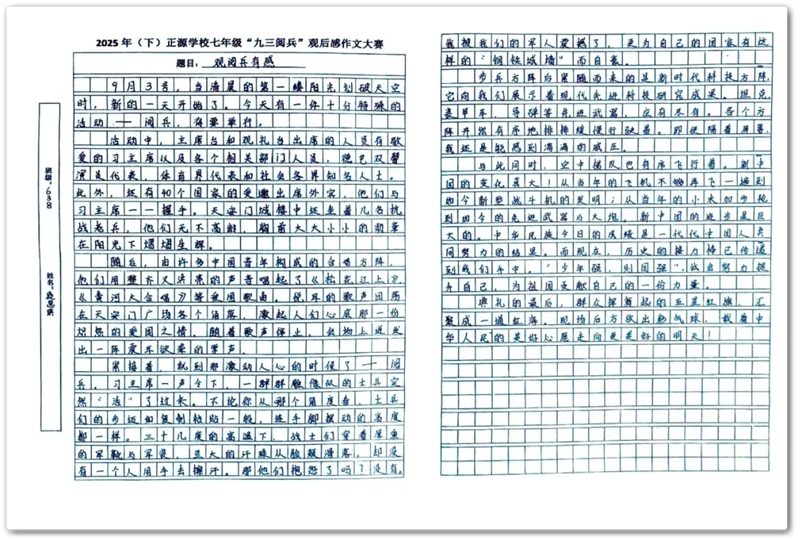 2025年（下）正源学校七年级“九三阅兵”观后感作文大赛
题目：观阅兵有感
班级：638
姓名：
9月3号，当清晨的第一缕阳光划破天空
时，新的一天开始了。今天有一件十分特殊的
活动——阅兵，将要举行。
活动中，主席台和观礼台出席的人员有敬
爱的习主席以及各个相关部门人员，德艺双馨
演员代表，体育界代表和社会各界知名人士。
此外，还有40个国家的受邀出席外宾，他们与
习主席一一握手。天安门城楼中还坐着几名抗
战老兵，他们无不高龄，胸前大大小小的勋章
在阳光下熠熠生辉。
随后，由许多中国青年构成的合唱方阵，
他们用整齐又洪亮的声音唱起了《松花江上》
《黄河大合唱》等爱国歌曲。悦耳的歌声回荡
在天安门广场各个角落，激起人们心底那一份
炽热的爱国之情。随着歌声停止，会场上迸发
出一阵震耳欲聋的掌声。
紧接着，就到那激动人心的时候了——阅
兵。习主席一声令下，一群群雕像似的士兵突
然“活”了过来。不论你从那个角度看，士兵
们的步迈如复制粘贴一般，连手脚摆动的高度
都一样。三十几度的高温下，战士们穿着厚重
的军靴与军装，豆大的汗珠从脸颊滑落，却没
有一个人用手去擦汗。那他们抱怨了吗？没有
我被我们的军人震撼了，更为自己的国家有这
样的“钢铁城墙”而自豪。
步兵方阵后紧随而来的是新时代科技方阵，
它向我们展示着现代先进科技研究成果。坦克
装甲车，导弹等先进武器，应有尽有。各个方
阵井然有序地排排缓慢行驶着。即使隔着屏幕，
我还是能感到满满的威压。
与此同时，空中梯队也有序飞行着。新中
国的变化真大！从当年的飞机不够再飞一遍到
如今新型战斗机的发明；从当年的小米加步枪
到如今的先进武器与大炮。新中国的进步是巨
大的。中华民族今日的成绩是一代代中国人共
同努力的结果。而现在，历史的接力棒已传递
到我们手中。“少年强，则国强”，我当努力提
升自己，为祖国贡献自己的一份力量。
典礼的最后，群众挥舞起的五星红旗，汇
聚成一道红海。现场后方放出的气球，载着中
华人民的美好心愿走向更美好的明天！